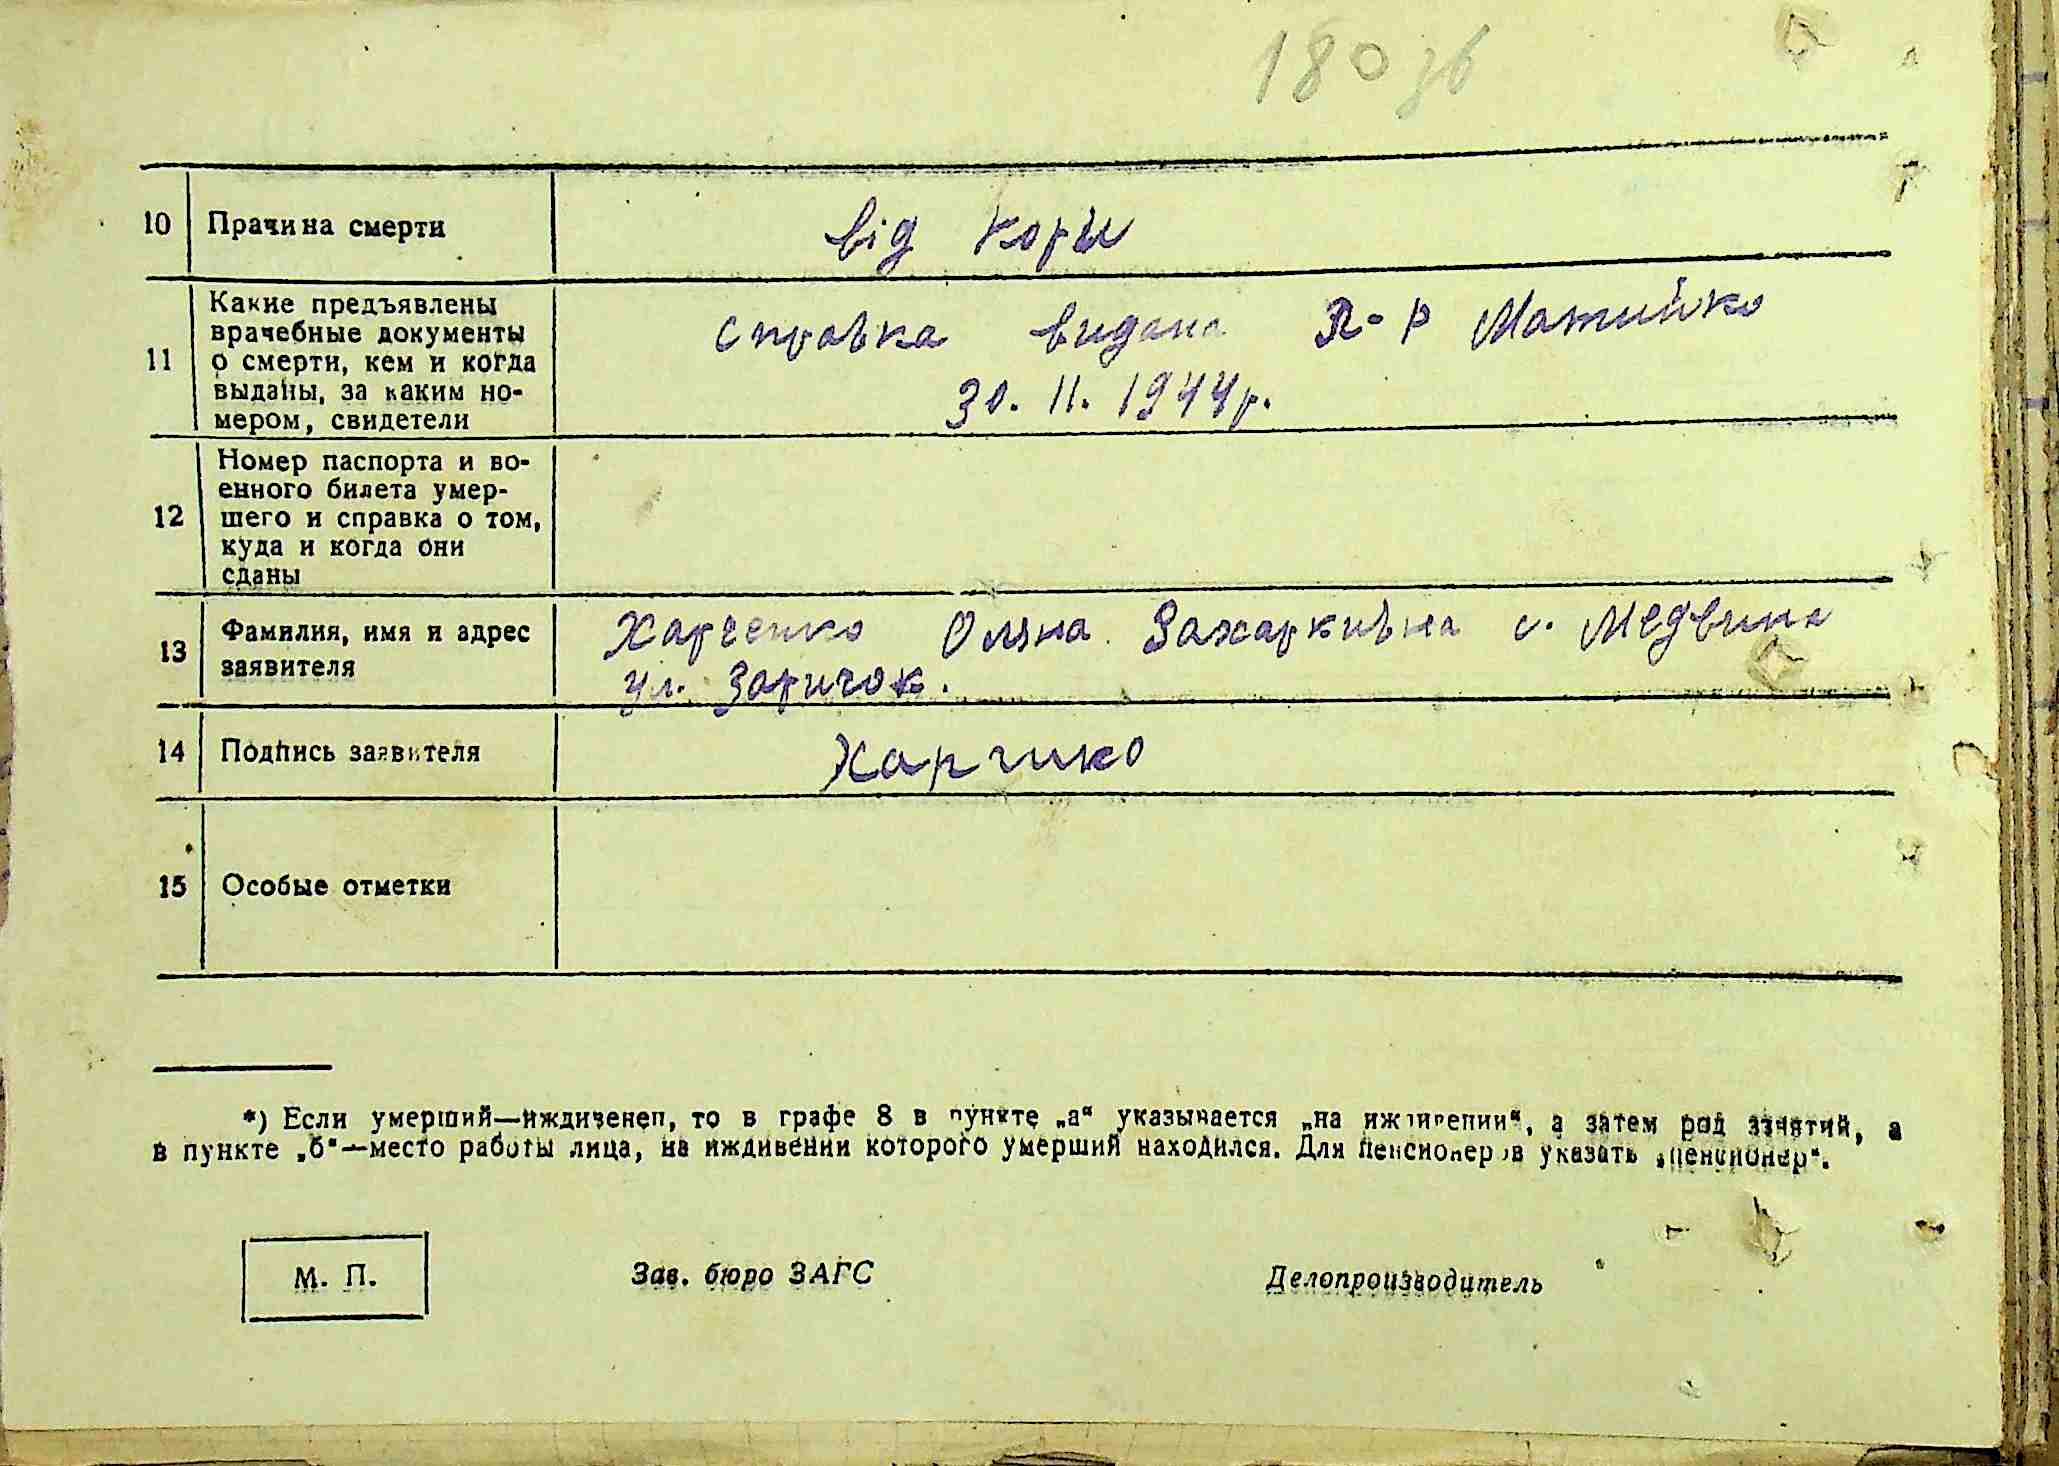 180 зв
10 Причина смерти від кори
11 Какие предъявлены
врачебные документы
о смерти, кем и когда
выданы, за каким но-
мером, свидетели
справка видана Л-р Матийко
30. 11. 1944 р.
12 Номер паспорта и во-
енного билета умер-
шего и справка о том,
куда и когда они
сданы
13 Фамилия, имя и адрес
заявителя
Харченко Оляна Захаркивна с. Медвина
ул. Заричок.
14 Подпись заявителя Харчнко
15 Особые отметки
*) Если умерший—иждивенец, то в графе 8 в пункте „а“ указывается „на иждивении“, а затем род занятий, а
в пункте „б“—место работы лица, на иждивении которого умерший находился. Для пенсионеров указать „пенсионер“.
М. П. Зав. бюро ЗАГС Делопроизводитель